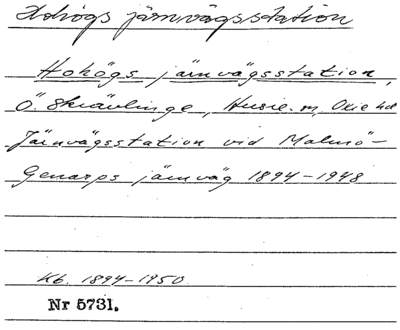 Hohögs järnvägsstation
Hohögs järnvägsstation,
Ö. Skrävlinge, Husie. sn, Oxie hd
Järnvägsstation vid Malmö-
Genarps järnväg 1894-1948
Kb. 1894-1950
Nr 5731.